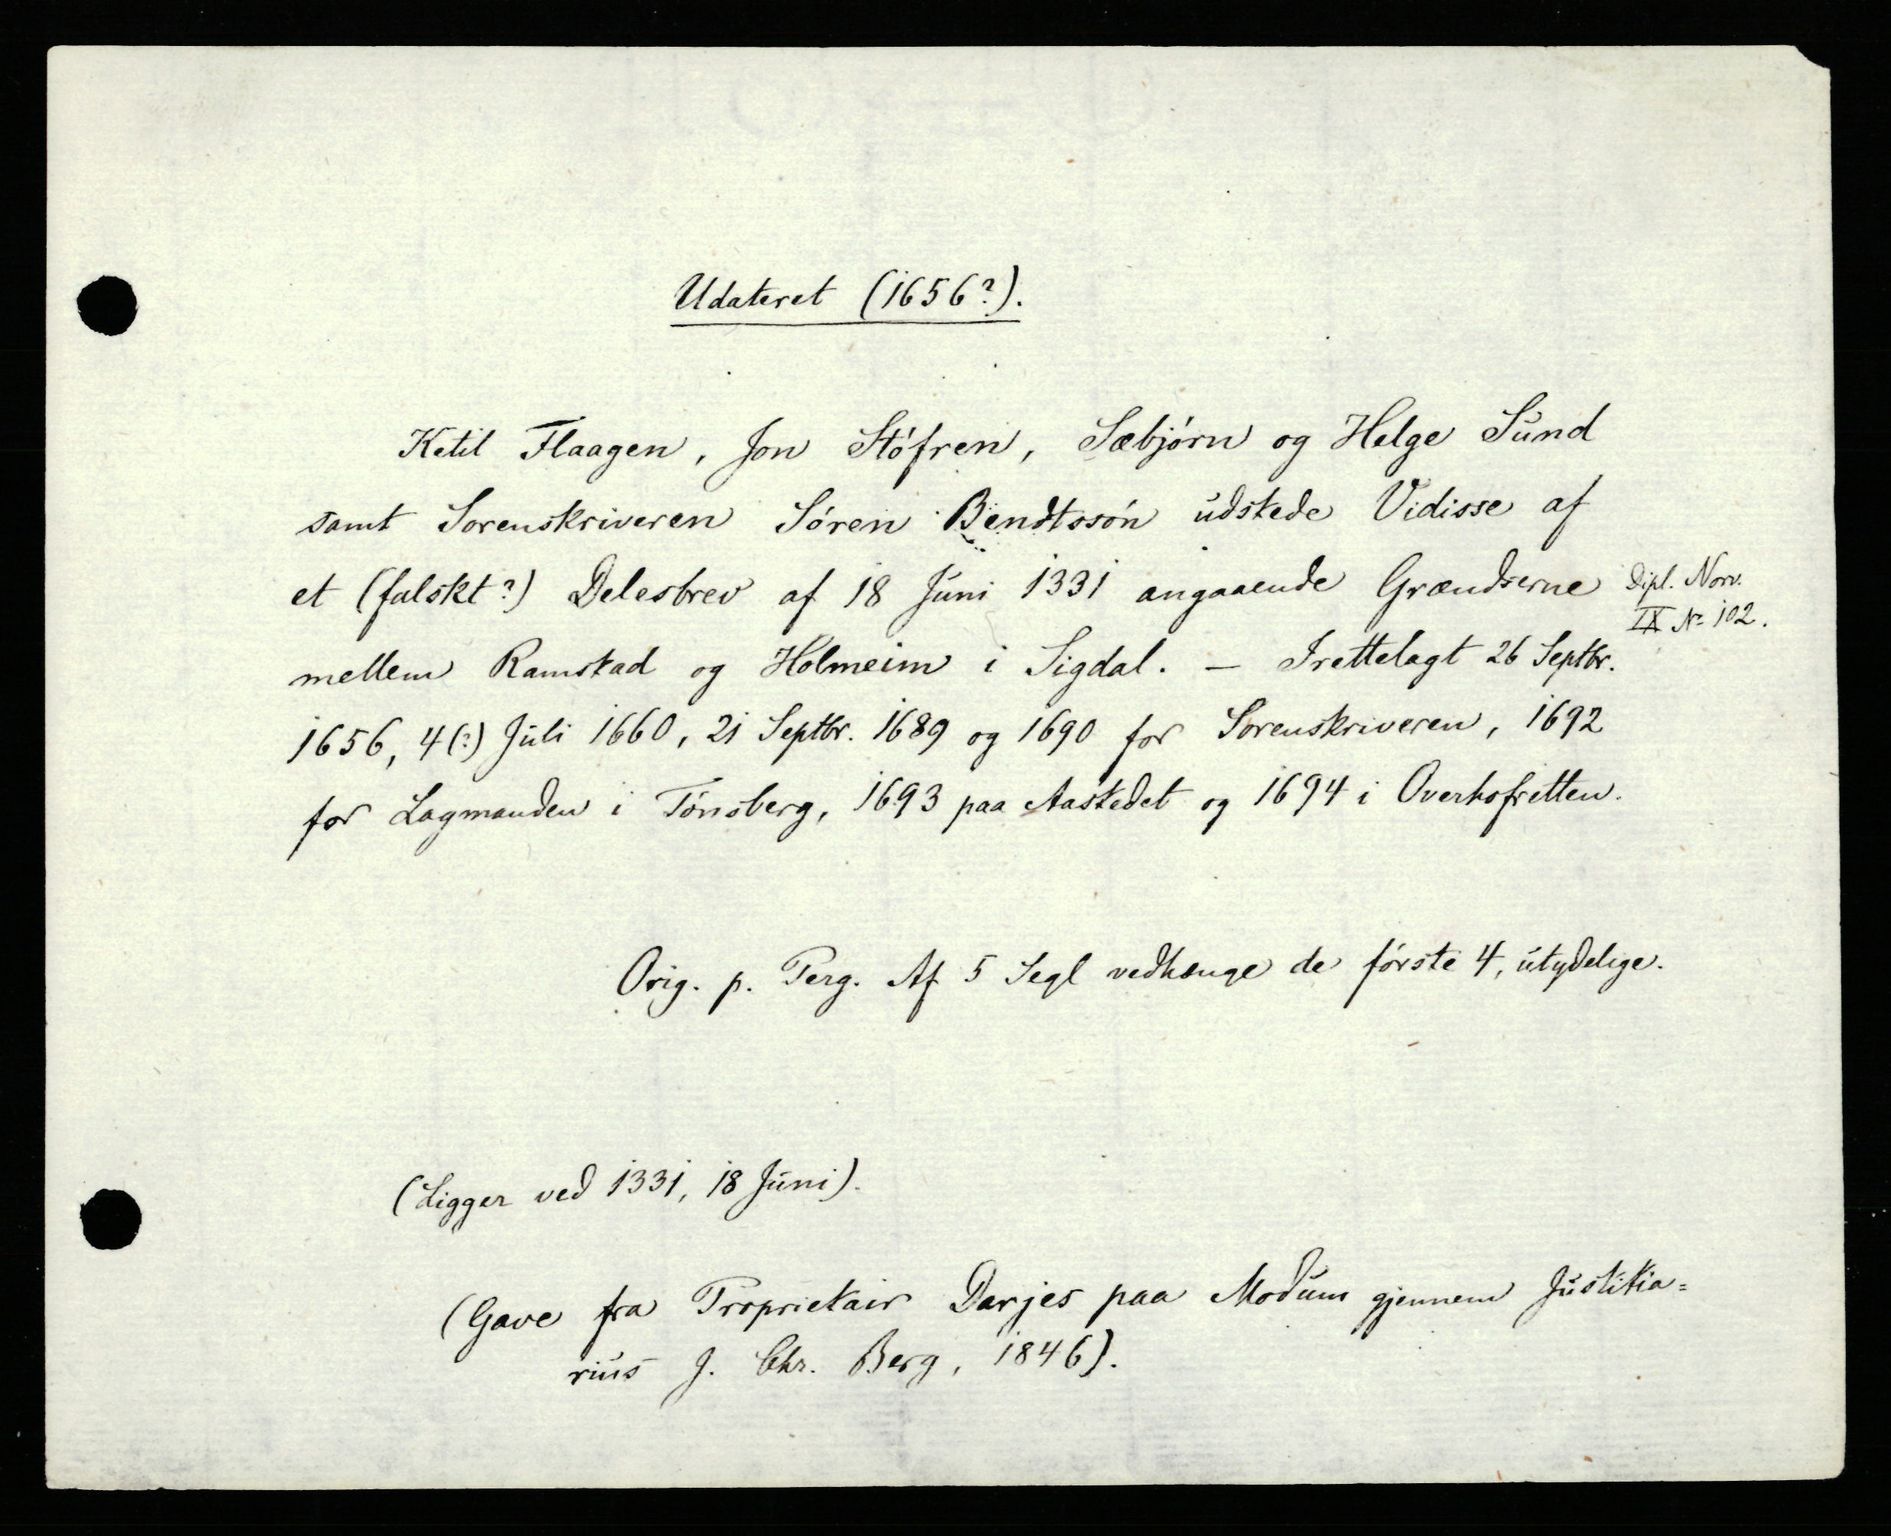 Udateret (1656?).
Ketil Flaagen, Jon Stófren, Sæbjórn og Helge Sund
samt Sorenskriveren Sóren Bendtssón udstede Vidisse af
et (falskt?) Delesbrev af 18 Juni 1331 angaaende Grændserne
Dipl. Norv.
IX No 102.
mellem Ramstad og Holmeim i Sigdal. – Irettelagt 26 Septbr.
1656, 4(?) Juli 1660, 21 Septbr. 1689 og 1690 for Sorenskriveren, 1692
for Lagmanden i Tónsberg, 1693 paa Aastedet og 1694 i Overhofretten.
Orig. p. Perg. Af 5 Segl vedhænge de fórste 4, utydelige.
(Ligger ved 1331, 18 Juni).
(Gave fra Proprietair Darjes paa Modum gjennem Justitia=
rius J. Chr. Berg, 1846).